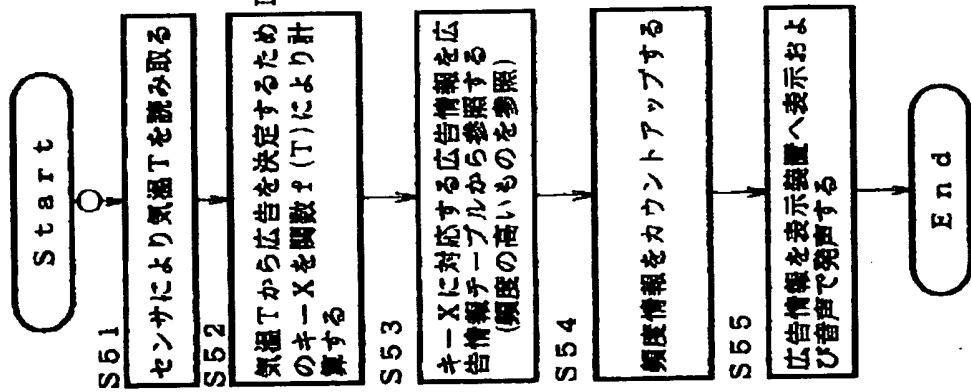 Start
S51
センサにより気温Tを読み取る
S52
気温Tから広告を決定するため
のキーXを関数f(T)により計
算する
S53
キーXに対応する広告情報を広
告情報テーブルから参照する
(頻度の高いものを参照)
S54
頻度情報をカウントアップする
S55
広告情報を表示装置へ表示およ
び音声で発声する
End